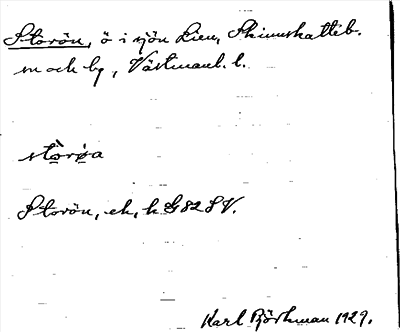 Storön, ö i sjön Lien, Skinnskatteb.
sn och bg, Västmanl. l.
stòrøa
Storön, ek, h G 82 S V.
Karl Björkman 1929.